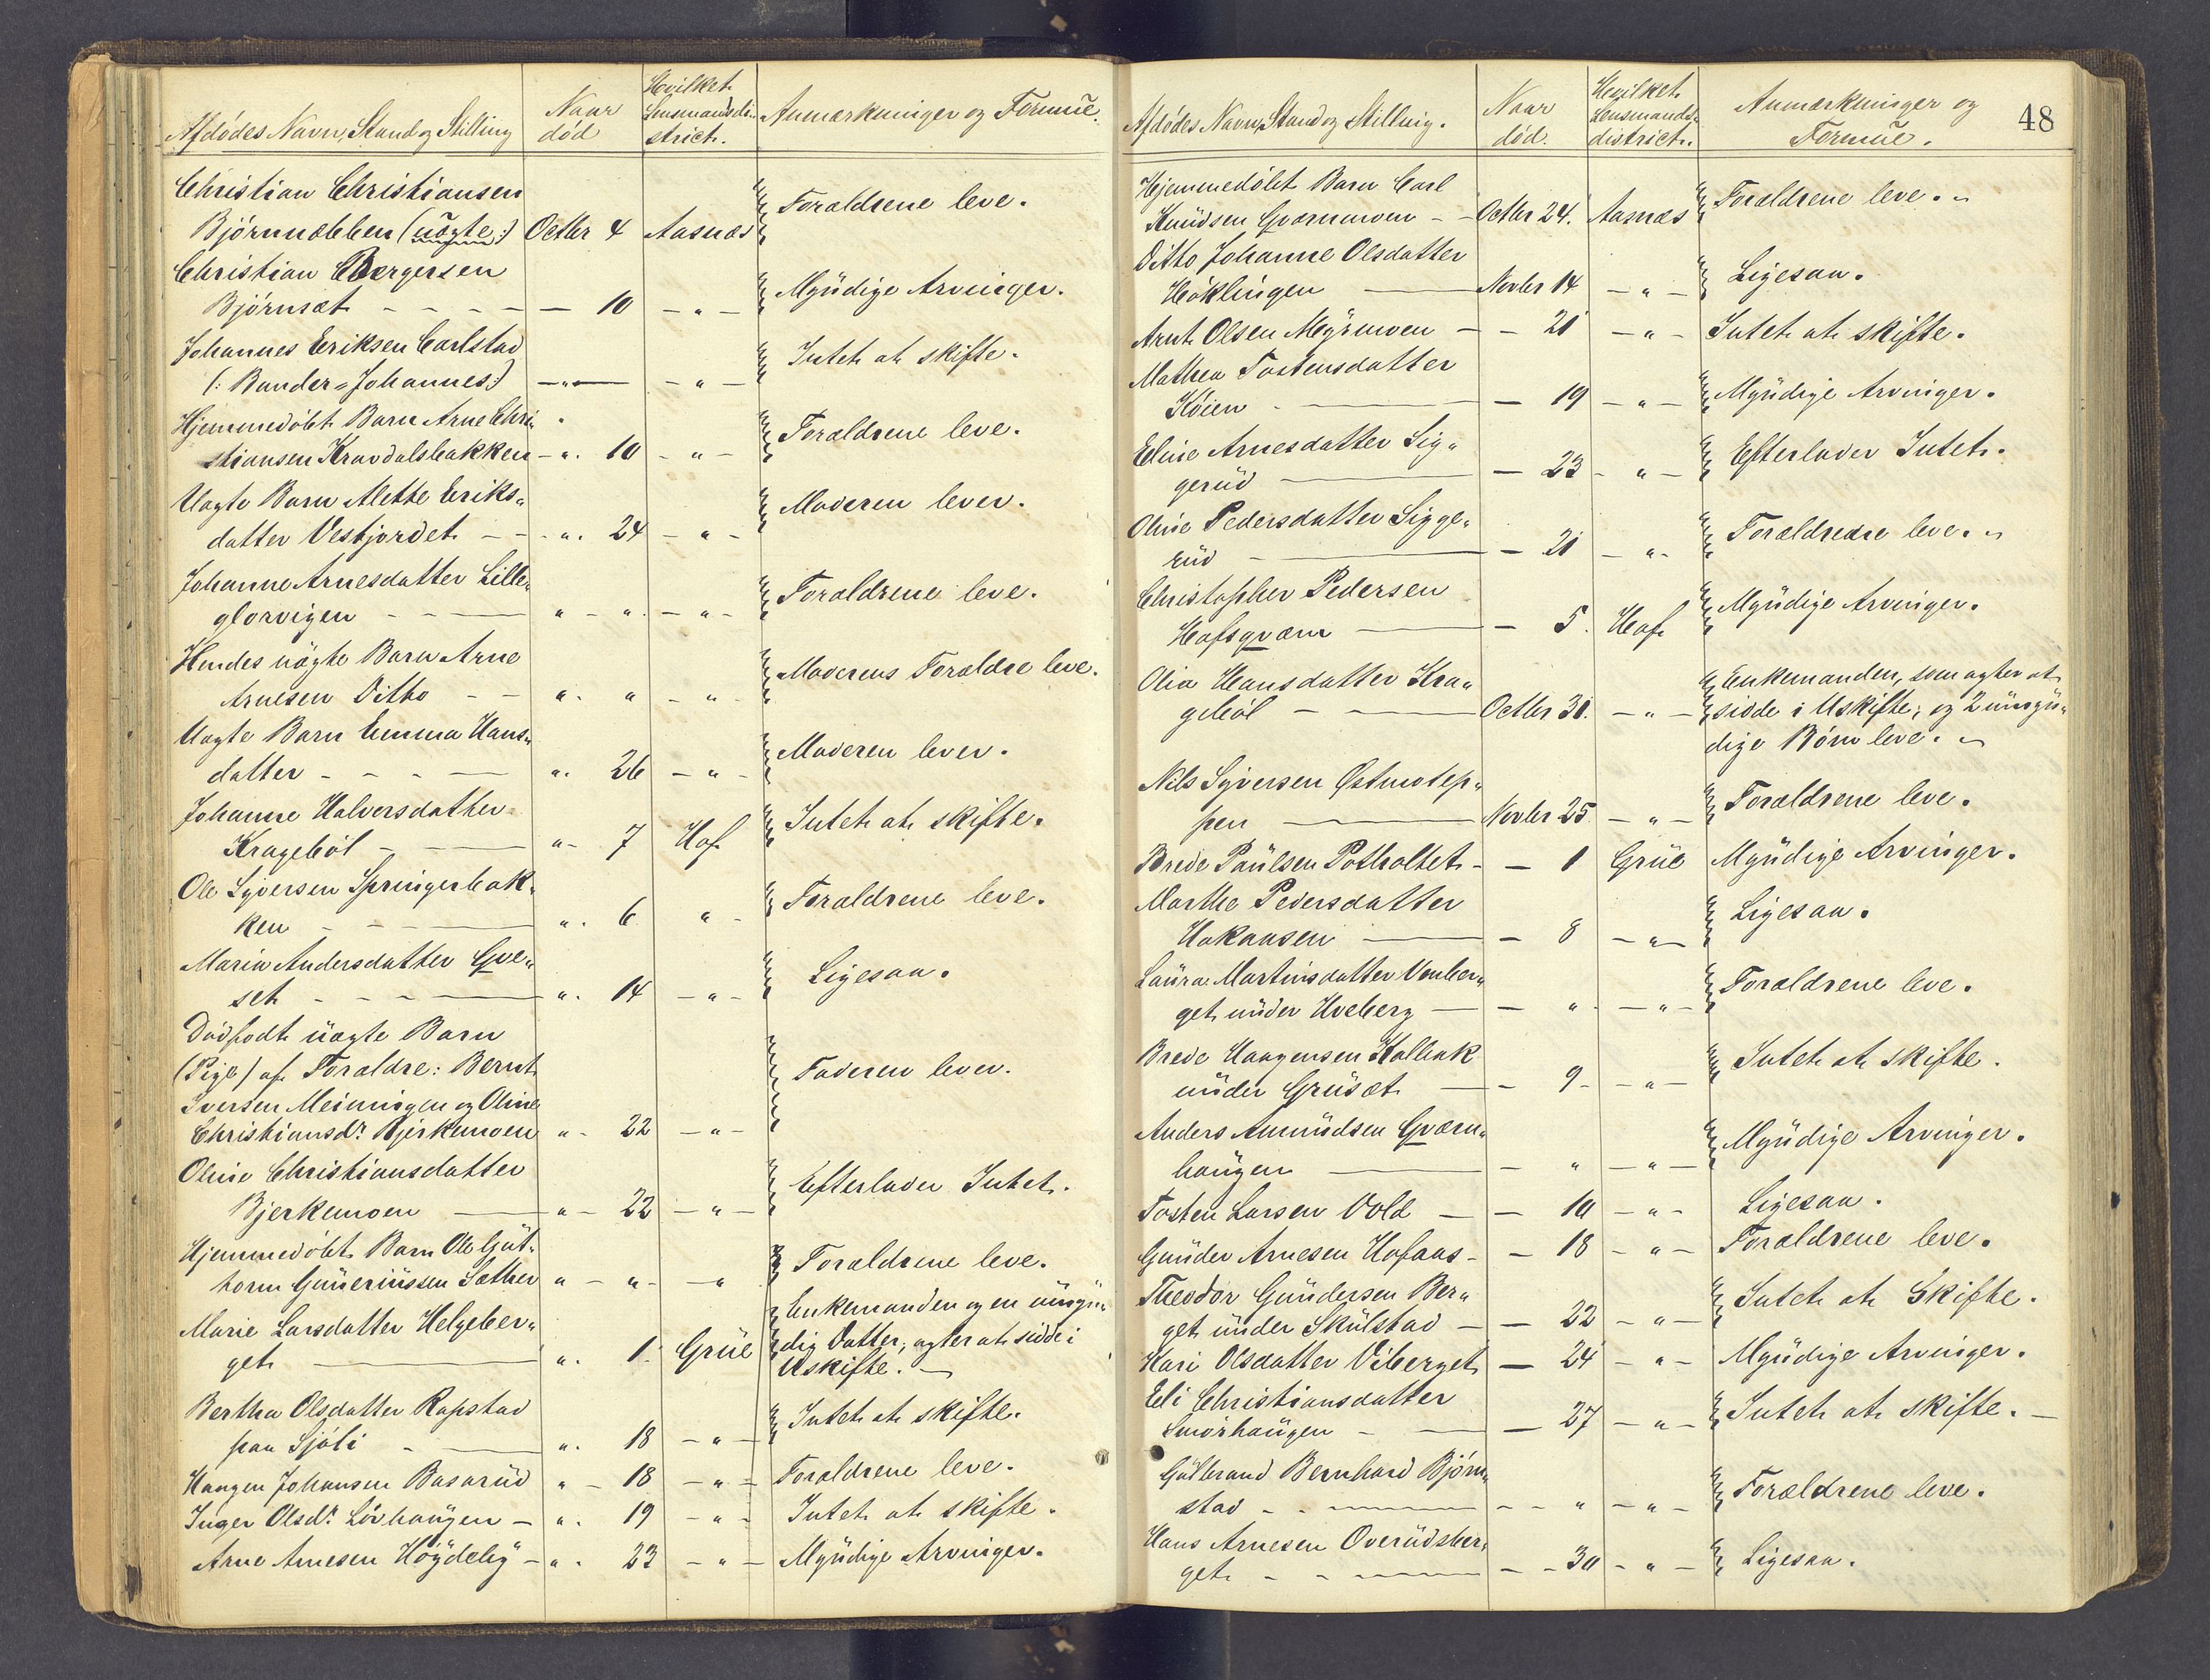 Afdödes Navn, Stand og Stilling
Naar
död
Hvilket
Lensmandsdi-
strict.
Anmærkninger og Formue.
Christian Christiansen
Björnnæbben (uægte:) Octbr 4 Aasnæs Forældrene leve.
Christian Børgersen
Björnsæt - - - - — 10 — " — Myndige Arvinger.
Johannes Eriksen Carlstad
(: Bander=Johannes:) — " — — " — Intet at skifte.
Hjemmedöbt Barn Arne Chri-
stiansen Kravdalsbakken — ". 10 — " — Forældrene leve.
Uægte Barn Alette Eriks-
datter Vestjordet — - ". 24 — " - Moderen lever.
Johanne Arnesdatter Lille-
glorvigen - - — " - ". — " - Forældrene leve.
Hendes uægte Barn Arne
Arnesen Ditto - - ". " - " - Moderens Forældre leve.
Uægte Barn Emma Hans-
datter - - - — ". 26 — " - Moderen lever.
Johanne Halvorsdatter
Krageböl - — " - 7 Hof Intet at skifte.
Ole Syversen Springerbak-
ken - - — ". 6 " - Forældrene leve.
Maria Andersdatter Qve-
set - - - — ". 14 — " - Ligesaa.
Dödfodt uægte Barn
(Pige) af Forældre: Bernt
Iversen Meiningen og Oline
Christiansdr. Bjerkemoen " - 22 — " - Faderen lever.
Oline Christiansdatter
Bjerkemoen — " - 22 — " — Efterlader Intet.
Hjemmedöbt Barn Ole Gut-
horm Guneriussen Sæther " - " - — " Forældrene leve.
Marie Larsdatter Helgeber-
get — ". 1. Grue Enkemanden og en umyn-
dig Datter; agter at sidde i
Uskifte. —
Bertha Olsdatter Rapstad
paa Sjöli - — ". 18 — " — Intet at skifte.
Haagen Johansen Basarud " - 18 — " — Forældrene leve.
Inger Olsdr. Lövhaugen — ". 19 — " - Intet at skifte.
Arne Arnesen Höydeby — ". 23 — " — Myndige Arvinger.
48
Afdödes Navn, Stand og Stilling.
Naar
död.
Hvilket
Lensmands-
district.
Anmærkninger og
Formue.
Hjemmedöbt Barn Carl
Knudsen Qværnmoen - — Octbr 24. Aasnæs Forældrene leve. "
Ditto Johanne Olsdatter
Höklingen — Novbr 14 — " — Ligesaa.
Arnt Olsen Myrmoen — — 21 — " - Intet at skifte.
Mathea Tostensdatter
Köien - — — 19 — " — Myndige Arvinger.
Eline Arnesdatter Sig-
gerud — — 23 - " — Efterlader Intet.
Oline Pedersdatter Sigge-
rud — — 21 — " - Forældredre leve. "
Christopher Pedersen
Hofsqværn — — 5. Hof Myndige Arvinger.
Olia Hansdatter Kra-
geböl - — Octbr 31. — " — Enkemanden, som agter at
sidde i Uskifte, og 2 umyn-
dige Börn leve. "
Nils Syversen Østmotep-
pen — Novbr 25 — " — Forældrene leve.
Brede Paulsen Potholtet - — 1 Grue Myndige Arvinger.
Marthe Pedersdatter
Hakaasen — — 8 — " — Ligesaa.
Laura Martinsdatter Vember-
get under Hveberg — — " - — " - Forældrene leve.
Brede Haagensen Kolbak
under Grusæt — - 9 - — " — Intet at skifte.
Anders Amundsen Qværn-
haugen — — " — " — Myndige Arvinger.
Tosten Larsen Vold — — 10 — " - Ligesaa.
Gunder Arnesen Hofaas - — 18 — " — Forældrene leve.
Theodor Gundersen Ber-
get under Skulstad — — 22 — " — Intet at Skifte.
Kari Olsdatter Viberget — 24 — " - Myndige Arvinger.
Eli Christiansdatter
Smörhaugen - — — 27 — " — Intet at skifte. —
Gulbrand Bernhard Björn-
stad - - — - - " — " - Forældrene leve.
Hans Arnesen Overudsber-
get - - — - - 30 - " — Ligesaa.